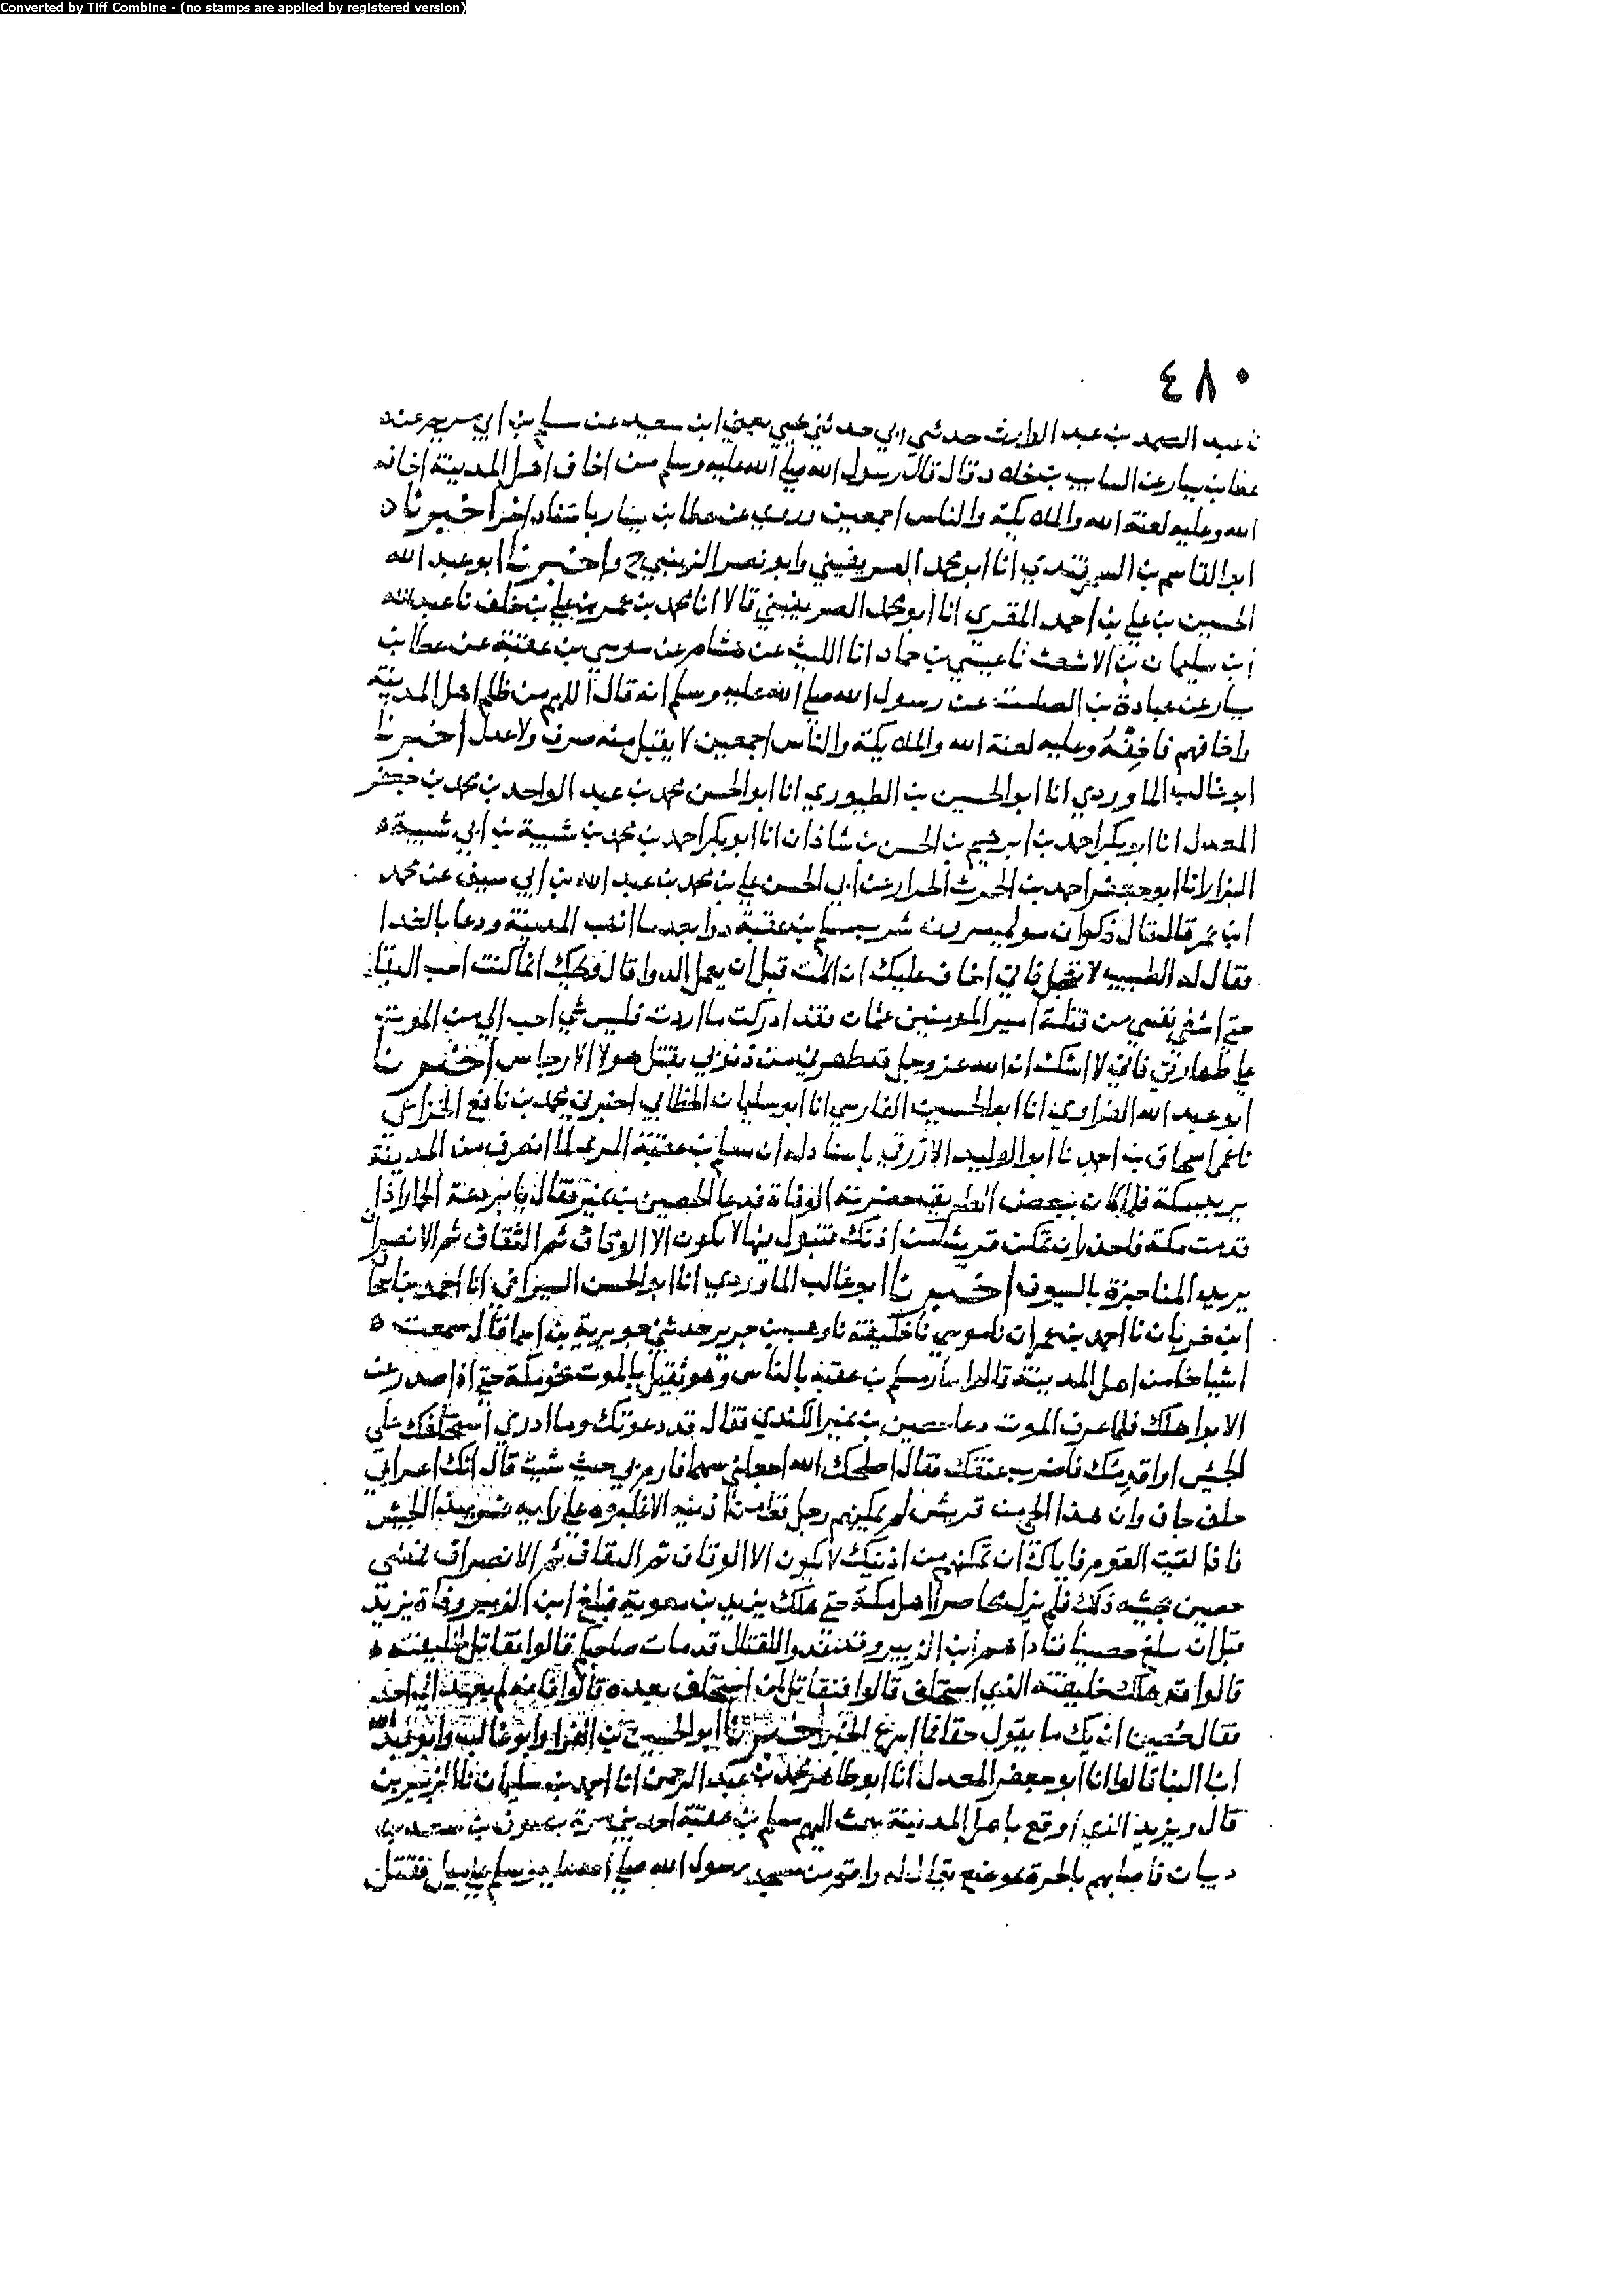 Converted by Tiff Combine - (no stamps are applied by registered version)
٤٨٠
عبد الصمد بن عبد الوارث حدثني ابي حدثني يحيي يعني ابن سعيد عن مسلم بن ابي مريم عن
عطا بن يسار عن السايب بن خلاد قال قال رسول الله صلي الله عليه وسلم من اخاف اهل المدينة اخافه
الله وعليه لعنة الله والملايكة والناس اجمعين وروي عن عطا بن يسار باسناد اخر اخبرناه
ابو القاسم بن السمرقندي انا ابو محمد الصريفيني وابو نصر الزينبي ح واخبرنا ابو عبد الله
الحسين بن علي بن احمد المقري انا ابو محمد الصريفيني قالا انا محمد بن عمر بن علي بن خلف نا عبد الله
ابن سليمان بن الاشعث نا عيسي بن حماد انا الليث عن هشام عن موسي بن عقبة عن عطا بن
يسار عن عبادة بن الصامت عن رسول الله صلي الله عليه وسلم انه قال اللهم من ظلم اهل المدينة
واخافهم فاخفه وعليه لعنة الله والملايكة والناس اجمعين لا يقبل منه صرف ولا عدل اخبرنا
ابو غالب الماوردي انا ابو الحسين بن الطيوري انا ابو الحسن محمد بن عبد الواحد بن محمد بن جعفر
المعدل انا ابو بكر احمد بن ابرهيم بن الحسن بن شاذان انا ابو بكر احمد بن محمد بن شيبة بن ابي شيبة
البزار انا ابو جعفر احمد بن الحرث الخزاز عن ابي الحسن علي بن محمد بن عبد الله بن ابي سيف عن محمد
ابن عمر قال قال ذكوان مولي مروان شرب مسلم بن عقبة دوا بعد ما انهب المدينة ودعا بالغدا
فقال له الطبيب لا تعجل فاني اخاف عليك ان اكلت قبل ان يعمل الدوا قال ويحك انما كنت احب البقا
حتي اشفي نفسي من قتلة امير المومنين عثمان فقد ادركت ما اردت فليس شي احب الي من الموت
علي طهارتي فاني لا اشك ان الله عز وجل قد طهرني من ذنوبي بقتل هولا الارجاس اخبرنا
ابو عبد الله الفراوي انا ابو الحسين الفارسي انا ابو سليمان الخطابي اخبرني محمد بن نافع الخزاعي
نا عمي اسحاق بن احمد نا ابو الوليد الازرقي باسناد له ان مسلم بن عقبة المري لما انصرف من المدينة
يريد مكة فلما كان ببعض الطريق حضرته الوفاة فدعا الحصين بن نمير فقال يا بردعة الحمار اذا
قدمت مكة فاحذر ان تمكن قريشا من اذنك فتبول فيها لا يكون الا الوقاف ثم الثقاف ثم الانصراف
يريد المناجزة بالسيوف اخبرنا ابو غالب الماوردي انا ابو الحسن السيرافي انا احمد بن اسحاق
ابن خربان نا احمد بن عمران نا موسي نا خليفة نا وهب بن جرير حدثني جويرية بن اسما قال سمعت
اشياخنا من اهل المدينة قالوا سار مسلم بن عقبة بالناس وهو ثقيل بالموت نحو مكة حتي اذا صدر عن
الابوا هلك فلما عرف الموت دعا حصين بن نمير الكندي فقال قد دعوتك وما ادري استخلفك علي
الجيش او اقدمك فاضرب عنقك فقال اصلحك الله اجعلني سهما فارم بي حيث شيت قال انك اعرابي
جلف جاف وان هذا الحي من قريش لم يمكنهم رجل قط من اذنيه الا غلبوه علي رايه فسر بهذا الجيش
فاذا لقيت القوم فاياك ان تمكنهم من اذنيك لا يكون الا الوقاف ثم الثقاف ثم الانصراف فمضي
حصين بجيشه ذلك فلم يزل محاصرا اهل مكة حتي هلك يزيد بن معوية فبلغ ابن الزبير وفاة يزيد
قبل ان يبلغ حصينا فناداهم ابن الزبير وقد غدوا للقتال قد مات صاحبكم قالوا نقاتل لخليفته
قالوا قد هلك خليفته الذي استخلف قالوا فنقاتل لمن استخلف بعده قالوا فانه لم يعهد الي احد
فقال حصين ان يك ما يقول حقا فما اسرع الخبر اخبرنا ابو الحسين بن الفرا وابو غالب وابو عبد الله
ابنا البنا قالوا انا ابو جعفر المعدل انا ابو طاهر محمد بن عبد الرحمن انا احمد بن سليمان نا الزبير بن
قال ويزيد الذي اوقع باهل المدينة بعث اليهم مسلم بن عقبة احد بني مرة بن عوف بن سعد بن
ديبان فاصابهم بالحرة بموضع يقال له واقم من مسجد رسول الله صلي الله عليه وسلم علي ميل فقتل